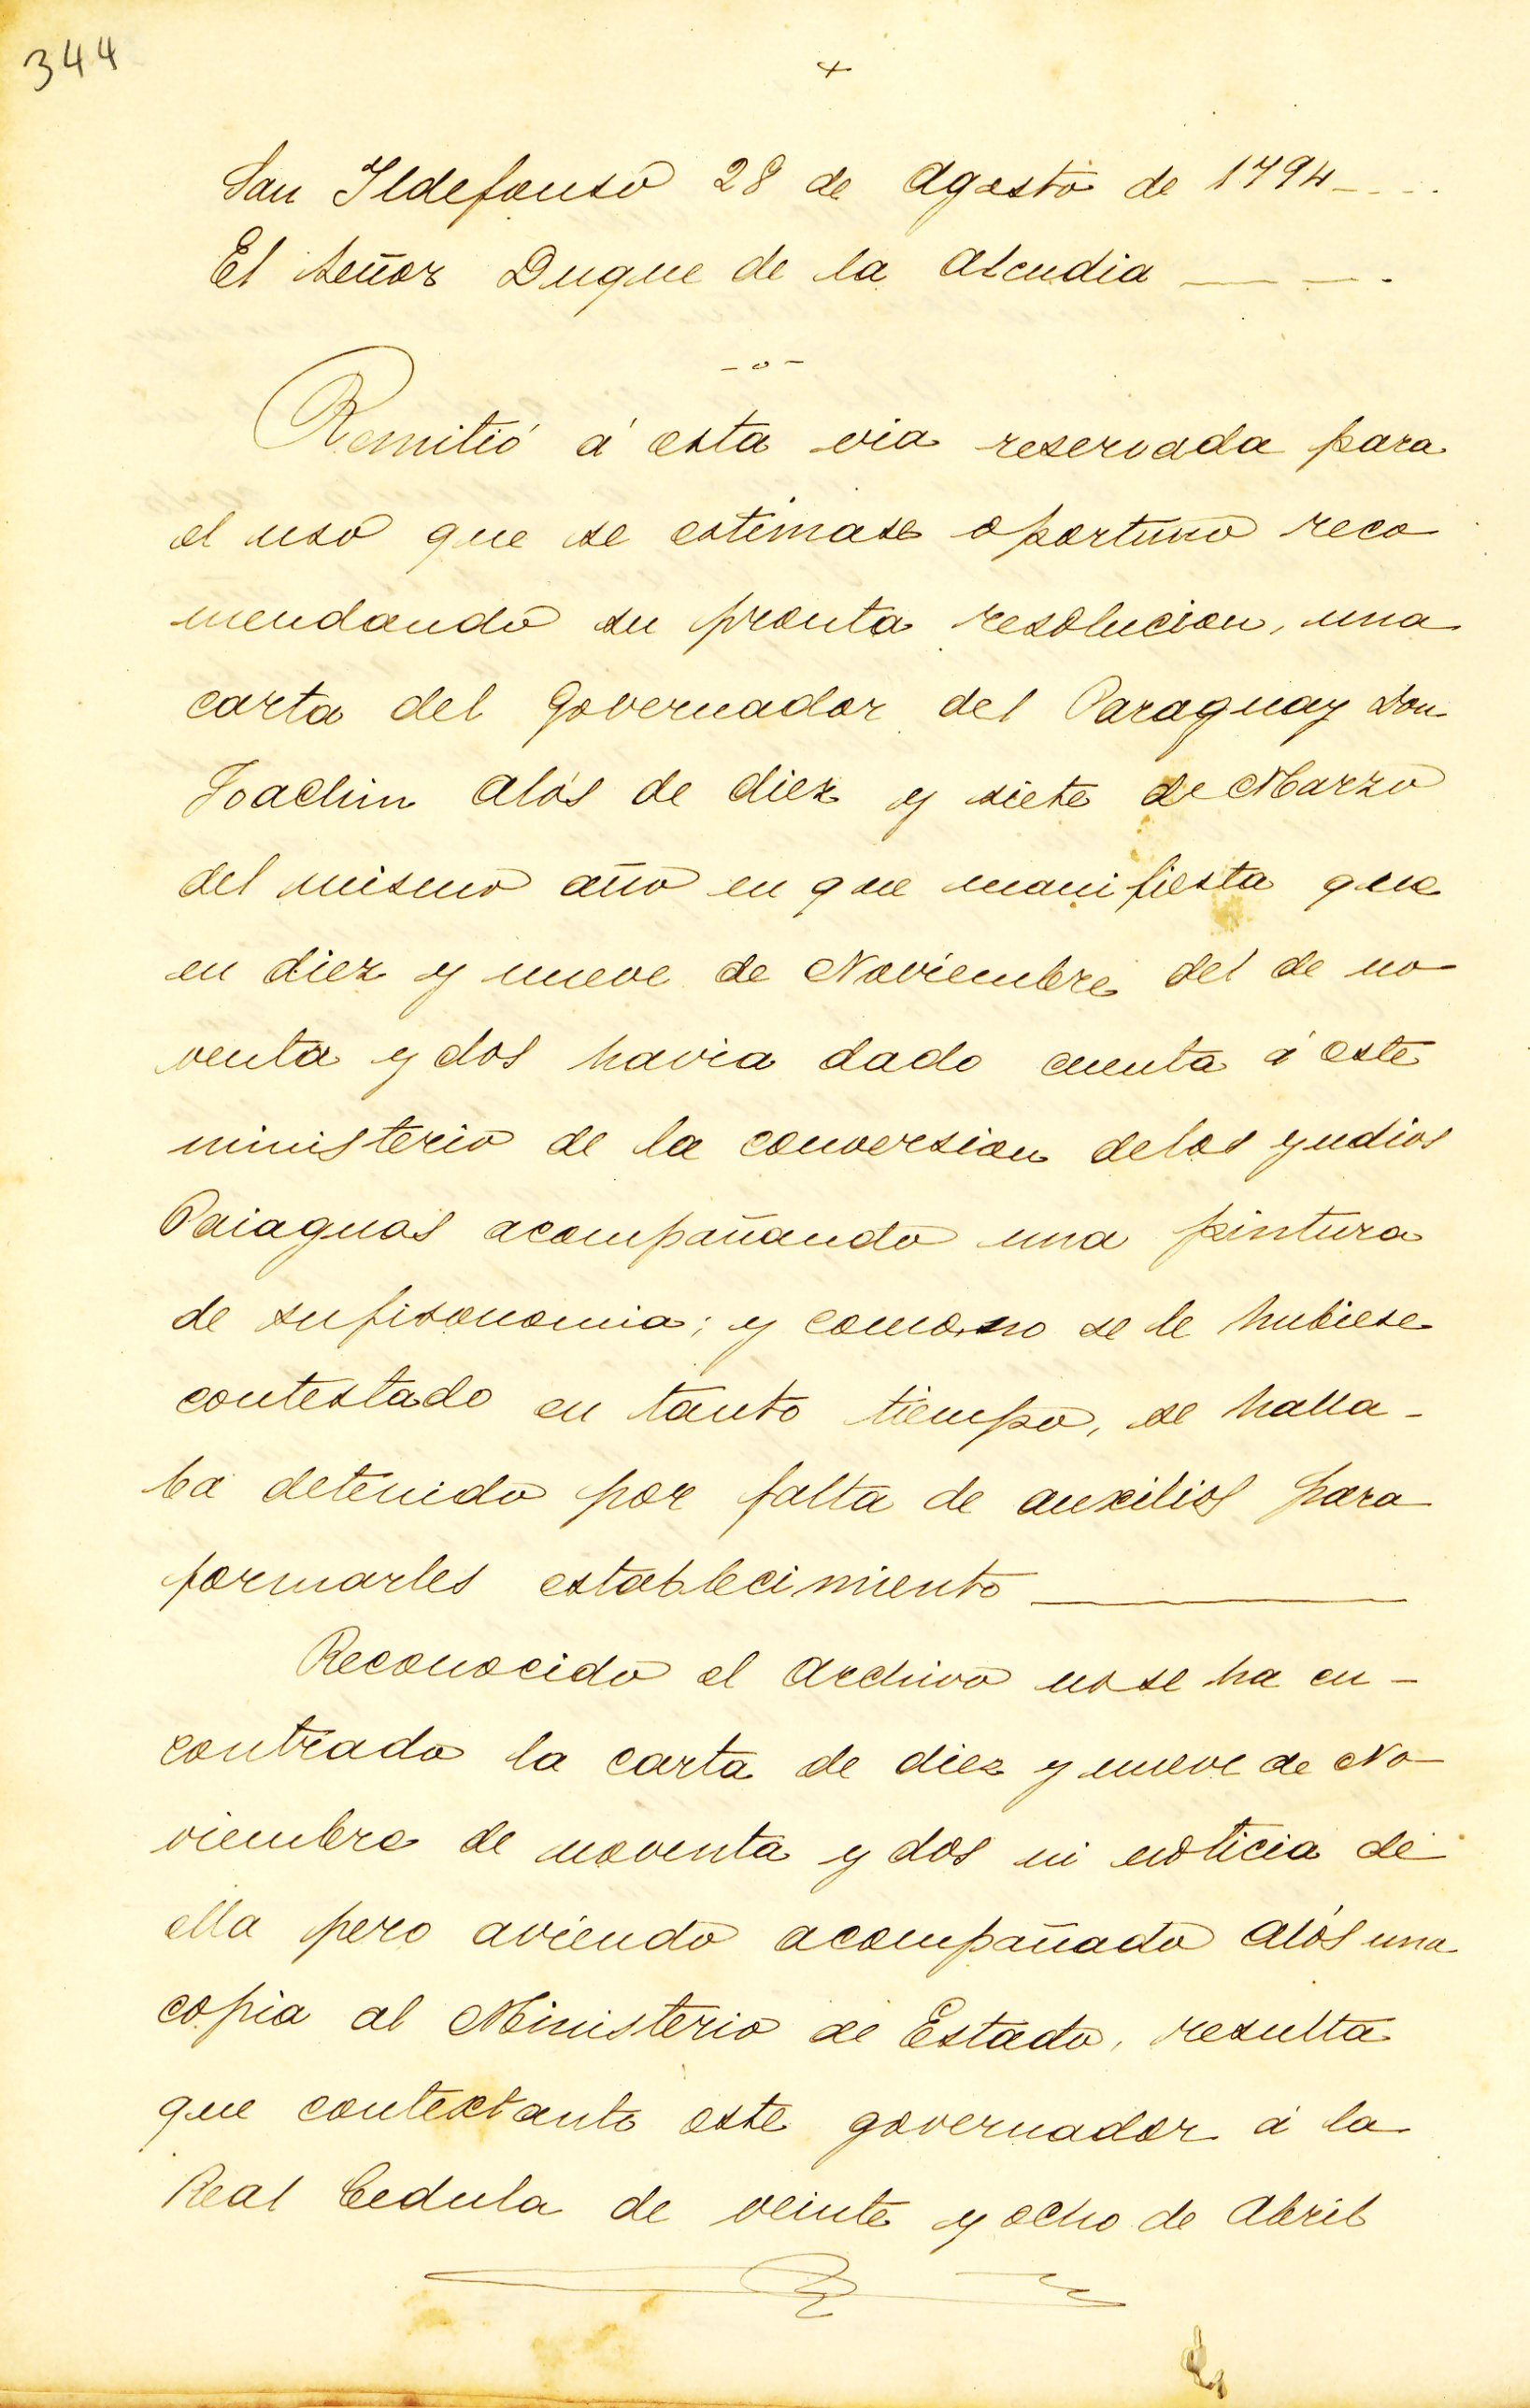 344
+
San Yldefonso 28 de Agosto de 1794
El Señor Duque de la Alcudia
Remitió á esta via reservada para
el uso que se estimase oportuno reco
mendando su pronta resolucion, una
carta del Governador del Paraguay Don
Joachin Alós de diez y siete de Marzo
del mismo año en que manifiesta que
en diez y nueve de Noviembre del de no
venta y dos havia dado cuenta á este
ministerio de la conversion delos yndios
Paiaguas acompañando una pintura
de sufisonomia; y como no se le hubiese
contestado en tanto tiempo, se halla-
ba detenido por falta de auxilios para
formarles establecimiento
Reconocido el Archivo nose ha en-
contrado la carta de diez y nueve de No-
viembre de noventa y dos ni noticia de
ella pero aviendo acompañado Alós una
copia al Ministerio de Estado, resulta
que contextanto este governador á la
Real Cedula de veinte y ocho de Abril